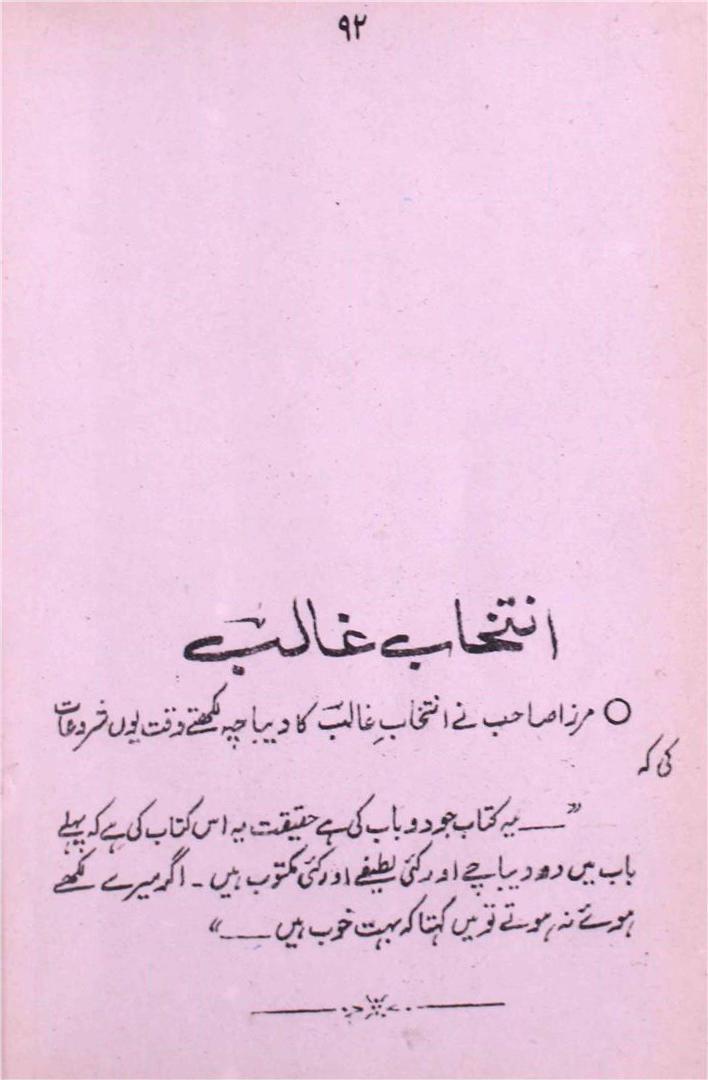 ۹۲
انتخاب غالبؔ
○ مرزا صاحب نے انتخابِ غالبؔ کا دیباچہ لکھتے وقت یوں شروعات
کی کہ
"ـــ یہ کتاب جو دو باب کی ہے حقیقت یہ اس کتاب کی ہے کہ پہلے
باب میں دو دیباچے اور کئی لطیفے اور کئی مکتوب ہیں ۔ اگر میرے لکھے
ہوئے نہ ہوتے تو میں کہتا کہ بہت خوب ہیں ـــ"